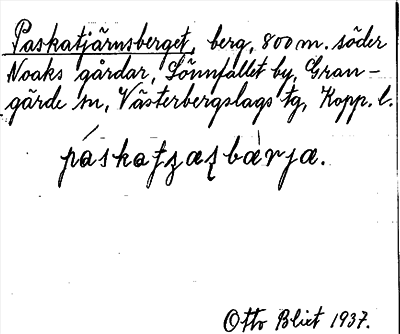 Paskatjärnsberget, berg, 800 m. söder
Noaks gårdar, Sönnfallet by, Gran-
gärde sn, Västerbergslags tg, Kopp. l.
Otto Blixt 1937.